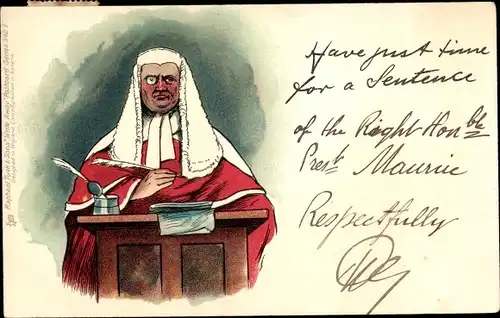 Have just time
for a Sentence
of the Right Honble
Prest. Maurice
Respectfully
Raphael Tuck & Sons' "Write Away" Postcard Series 342.